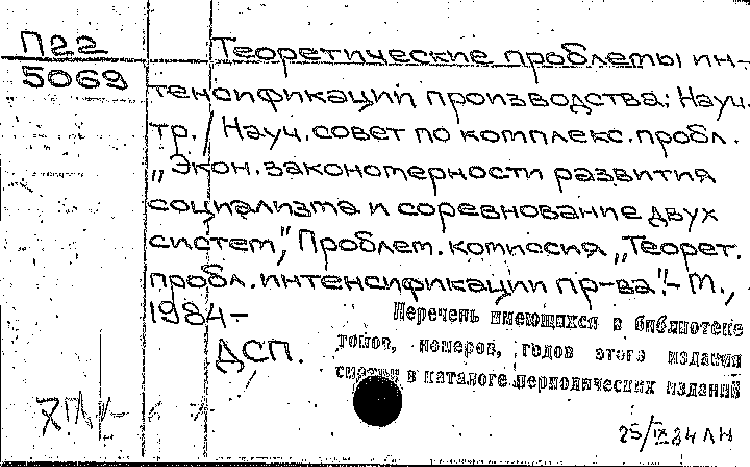 П22
5069
Теоретические проблемы ин-
тенсификации производства: Науч.
тр. / Науч. совет по комплекс. пробл.
„Экон. закономерности развития
социализма и соревнование двух
систем", Проблем. комиссия „Теорет.
пробл. интенсификации пр-ва". - М.,
1984-
ДСП.
Перечень имеющихся в библиотеке
томов, номеров, годов этого издания
смотри в каталоге периодических изданий
25/IX 84 ЛН